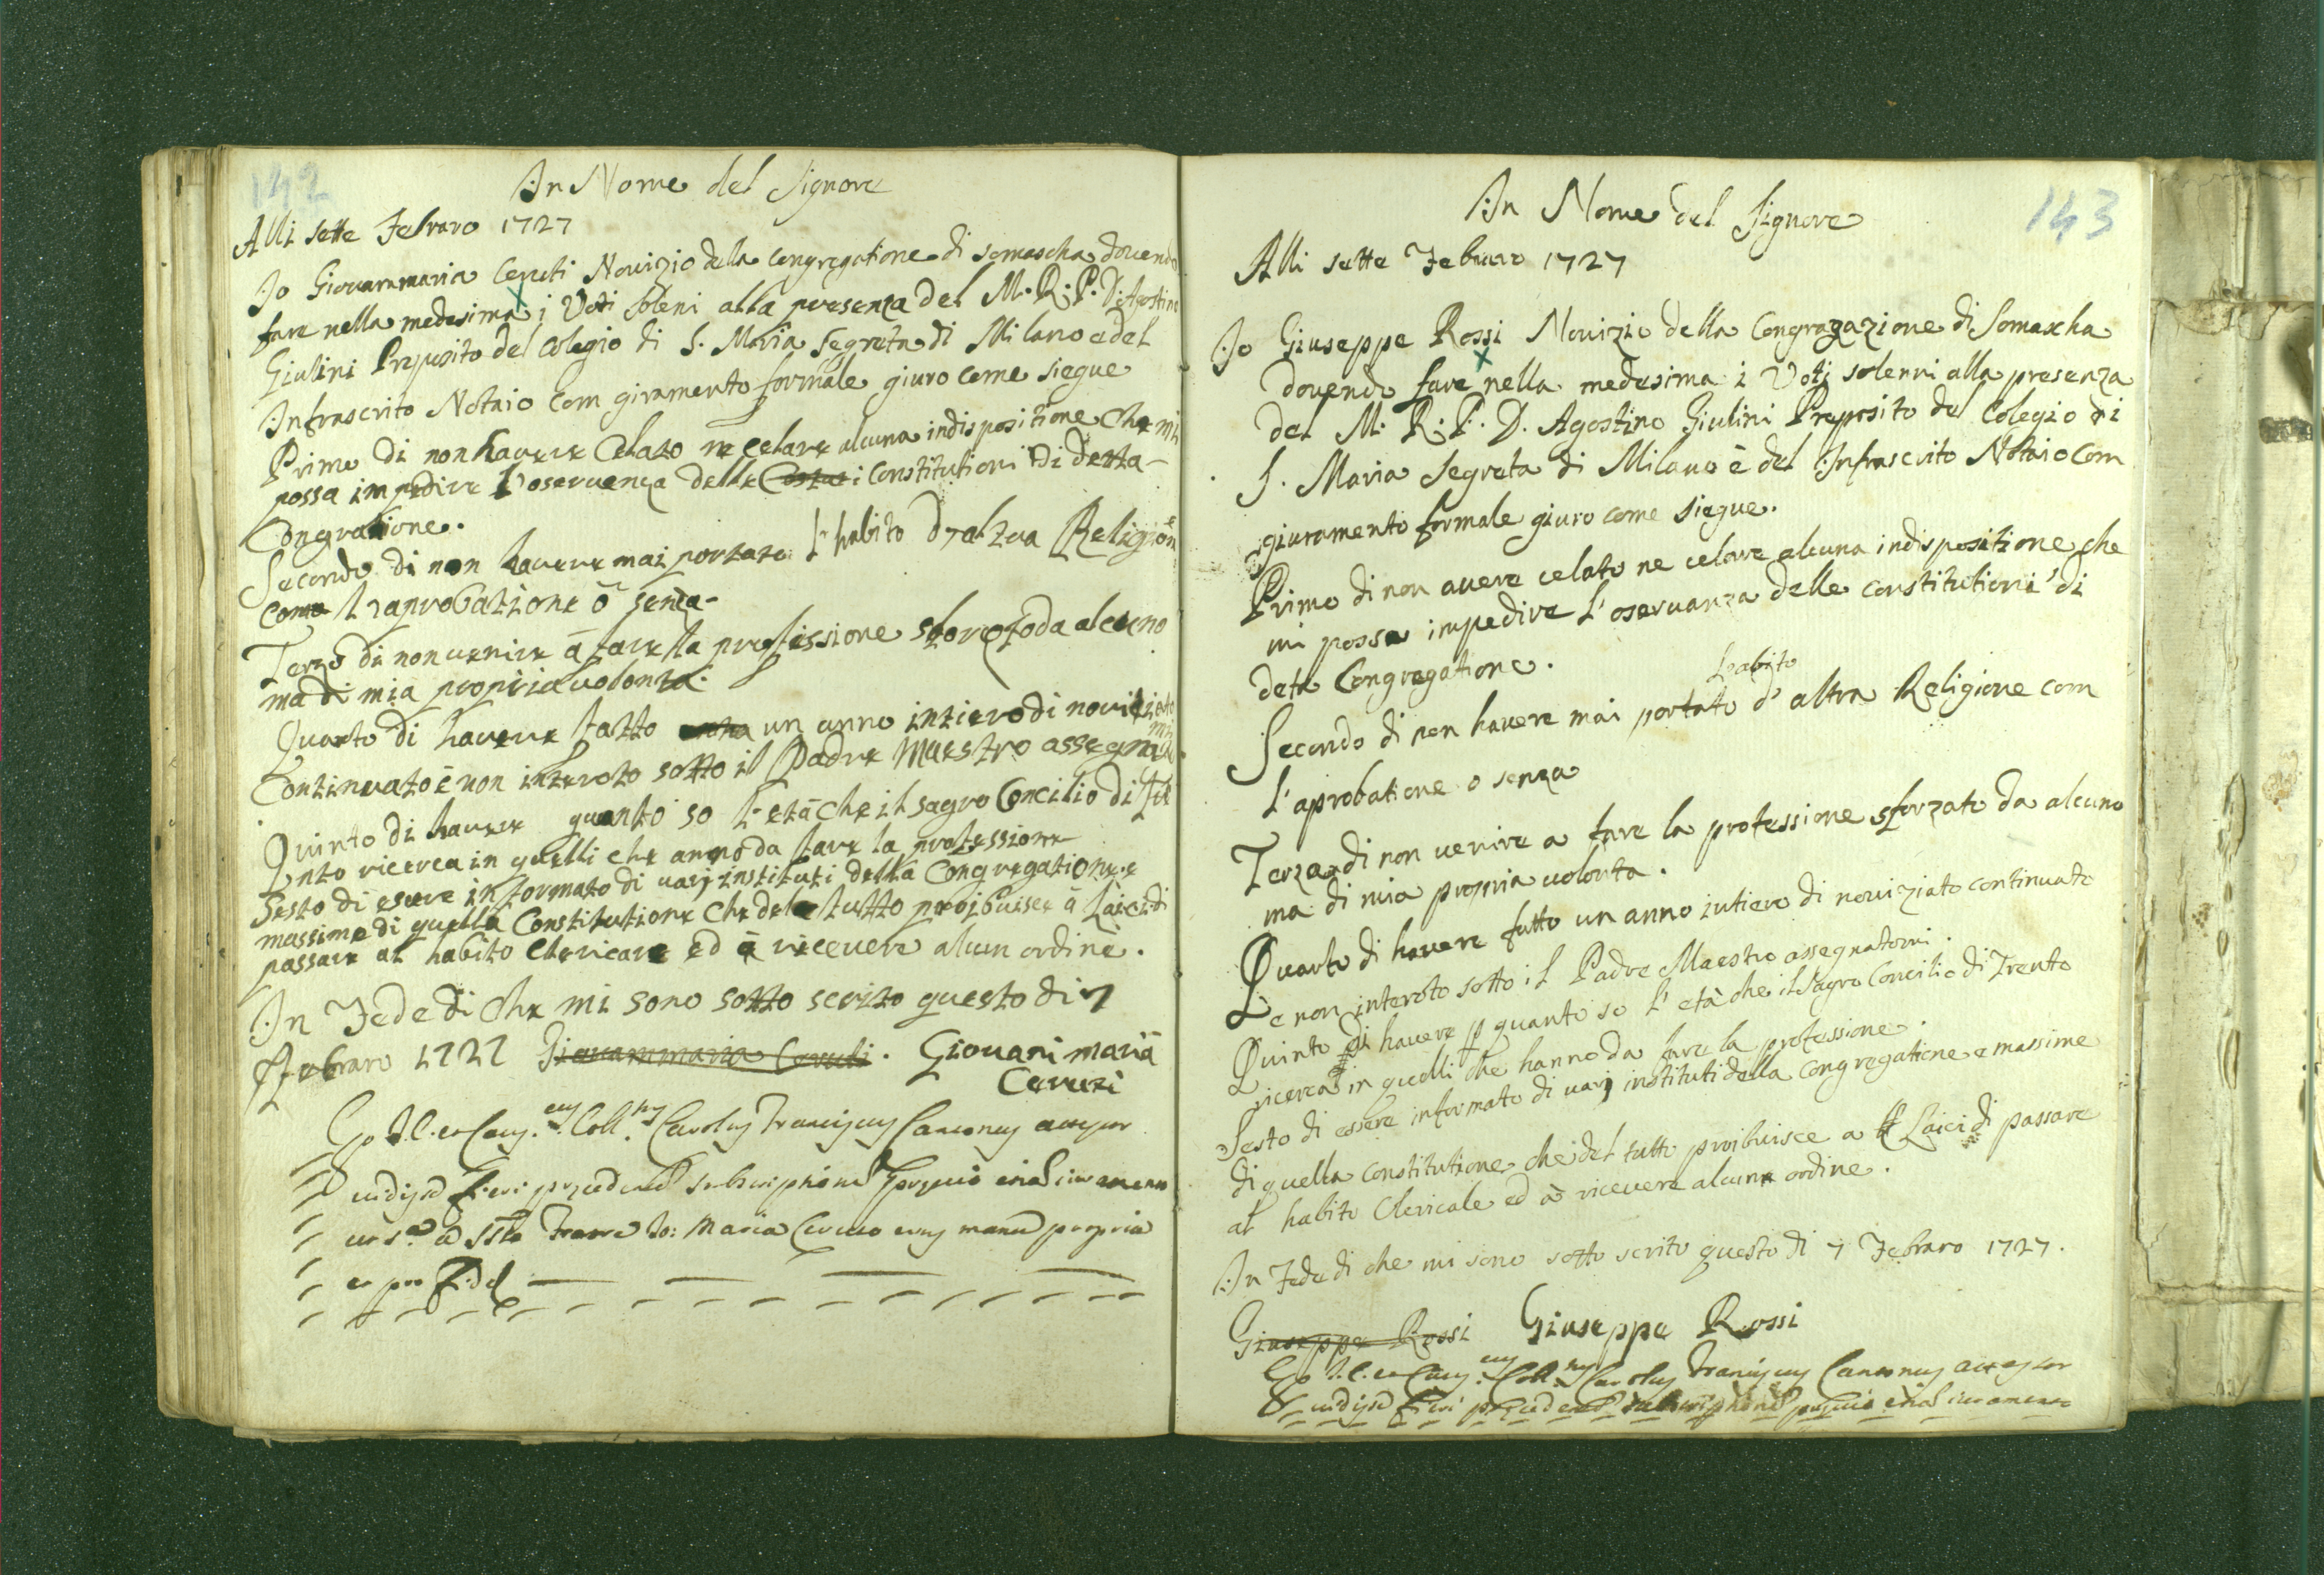 142
In Nome del Signore
Alli sette Febraro 1727
Io Giovanmaria Ceruti Novizio della congregatione di somascha dovendo
fare nella medesima i Voti soleni alla presenza del M. R. P. D. Agostino
Giulini Preposito del Colegio di S. Maria Segreta di Milano e del
Infrascrito Notaio com giramento formale giuro come siegue
Primo di non havere Celato ne Celare alcuna indispositione che mi
possa impedire l'oservenza delle i Constitutioni di detta
Congratione.
Secondo di non havere mai portato l'habito d'altra Religion
como l'aprobatione ò senza
Terzo di non venire à fare la professione sforzato da alcuno
ma di mia propria volonta.
Quarto di havere fatto un anno intiero di novitiato
Continuato è non interoto sotto il Padre Maestro assegnato
mi
Quinto di havere quanto so l'età che il sagro Concilio di Tre
nto ricerca in quelli che anno da fare la professione
Sesto di esere informato di varj instituti della Congregatione e
massime di quella Constitutione che del tutto proibuisce à Laici di
passare al habito Clericare ed à ricevere alcun ordine.
In Fede di che mi sono sotto scrito questo di 7
Febraro 1727 Giovanmaria Ceruti. Giovani maria
Ceruti
Ego J. C. et Caus. Coll. Carolus Franciscus
fieri
Maria manu propria
143
In Nome del Signore
Alli sette Febraro 1727
Io Giuseppe Rossi Novizio della Congragazione di Somascha
dovendo fare nella medesima i Voti solenni alla presenza
del M. R. P. D. Agostino Giulini Preposito del Colegio di
S. Maria Segreta di Milano è del Infrascrito Notaio Com
giuramento formale giuro come siegue.
Primo di non avere celato ne celare alcuna indispositione che
mi possa impedire l'oservanza delle constitutioni di
deta Congregatione.
l'abito
Secondo di non havere mai portato d'altra Religione com
l'aprobatione o senza
Terza di non venire a fare la professione sforzato da alcuno
ma di mia propria volonta.
Quarto di havere fatto un anno intiero di noviziato continuato
e non interoto sotto il Padre Maestro assegnatomi.
Quinto di havere p quanto so l'età che il Sagro Concilio di Trento
ricerca in quelli che hanno da fare la professione.
Sesto di essere informato di varj instituti della Congregatione e massime
di quella constitutione che del tutto proibuisce a Laici di passare
al habito Clericale ed à ricevere alcuna ordine.
In Fede di che mi sono sotto scrito questo di 7 Febraro 1727.
Giuseppe Rossi Giuseppe Rossi
Ego J. C. et Caus. Coll. Carolus Franciscus
fieri